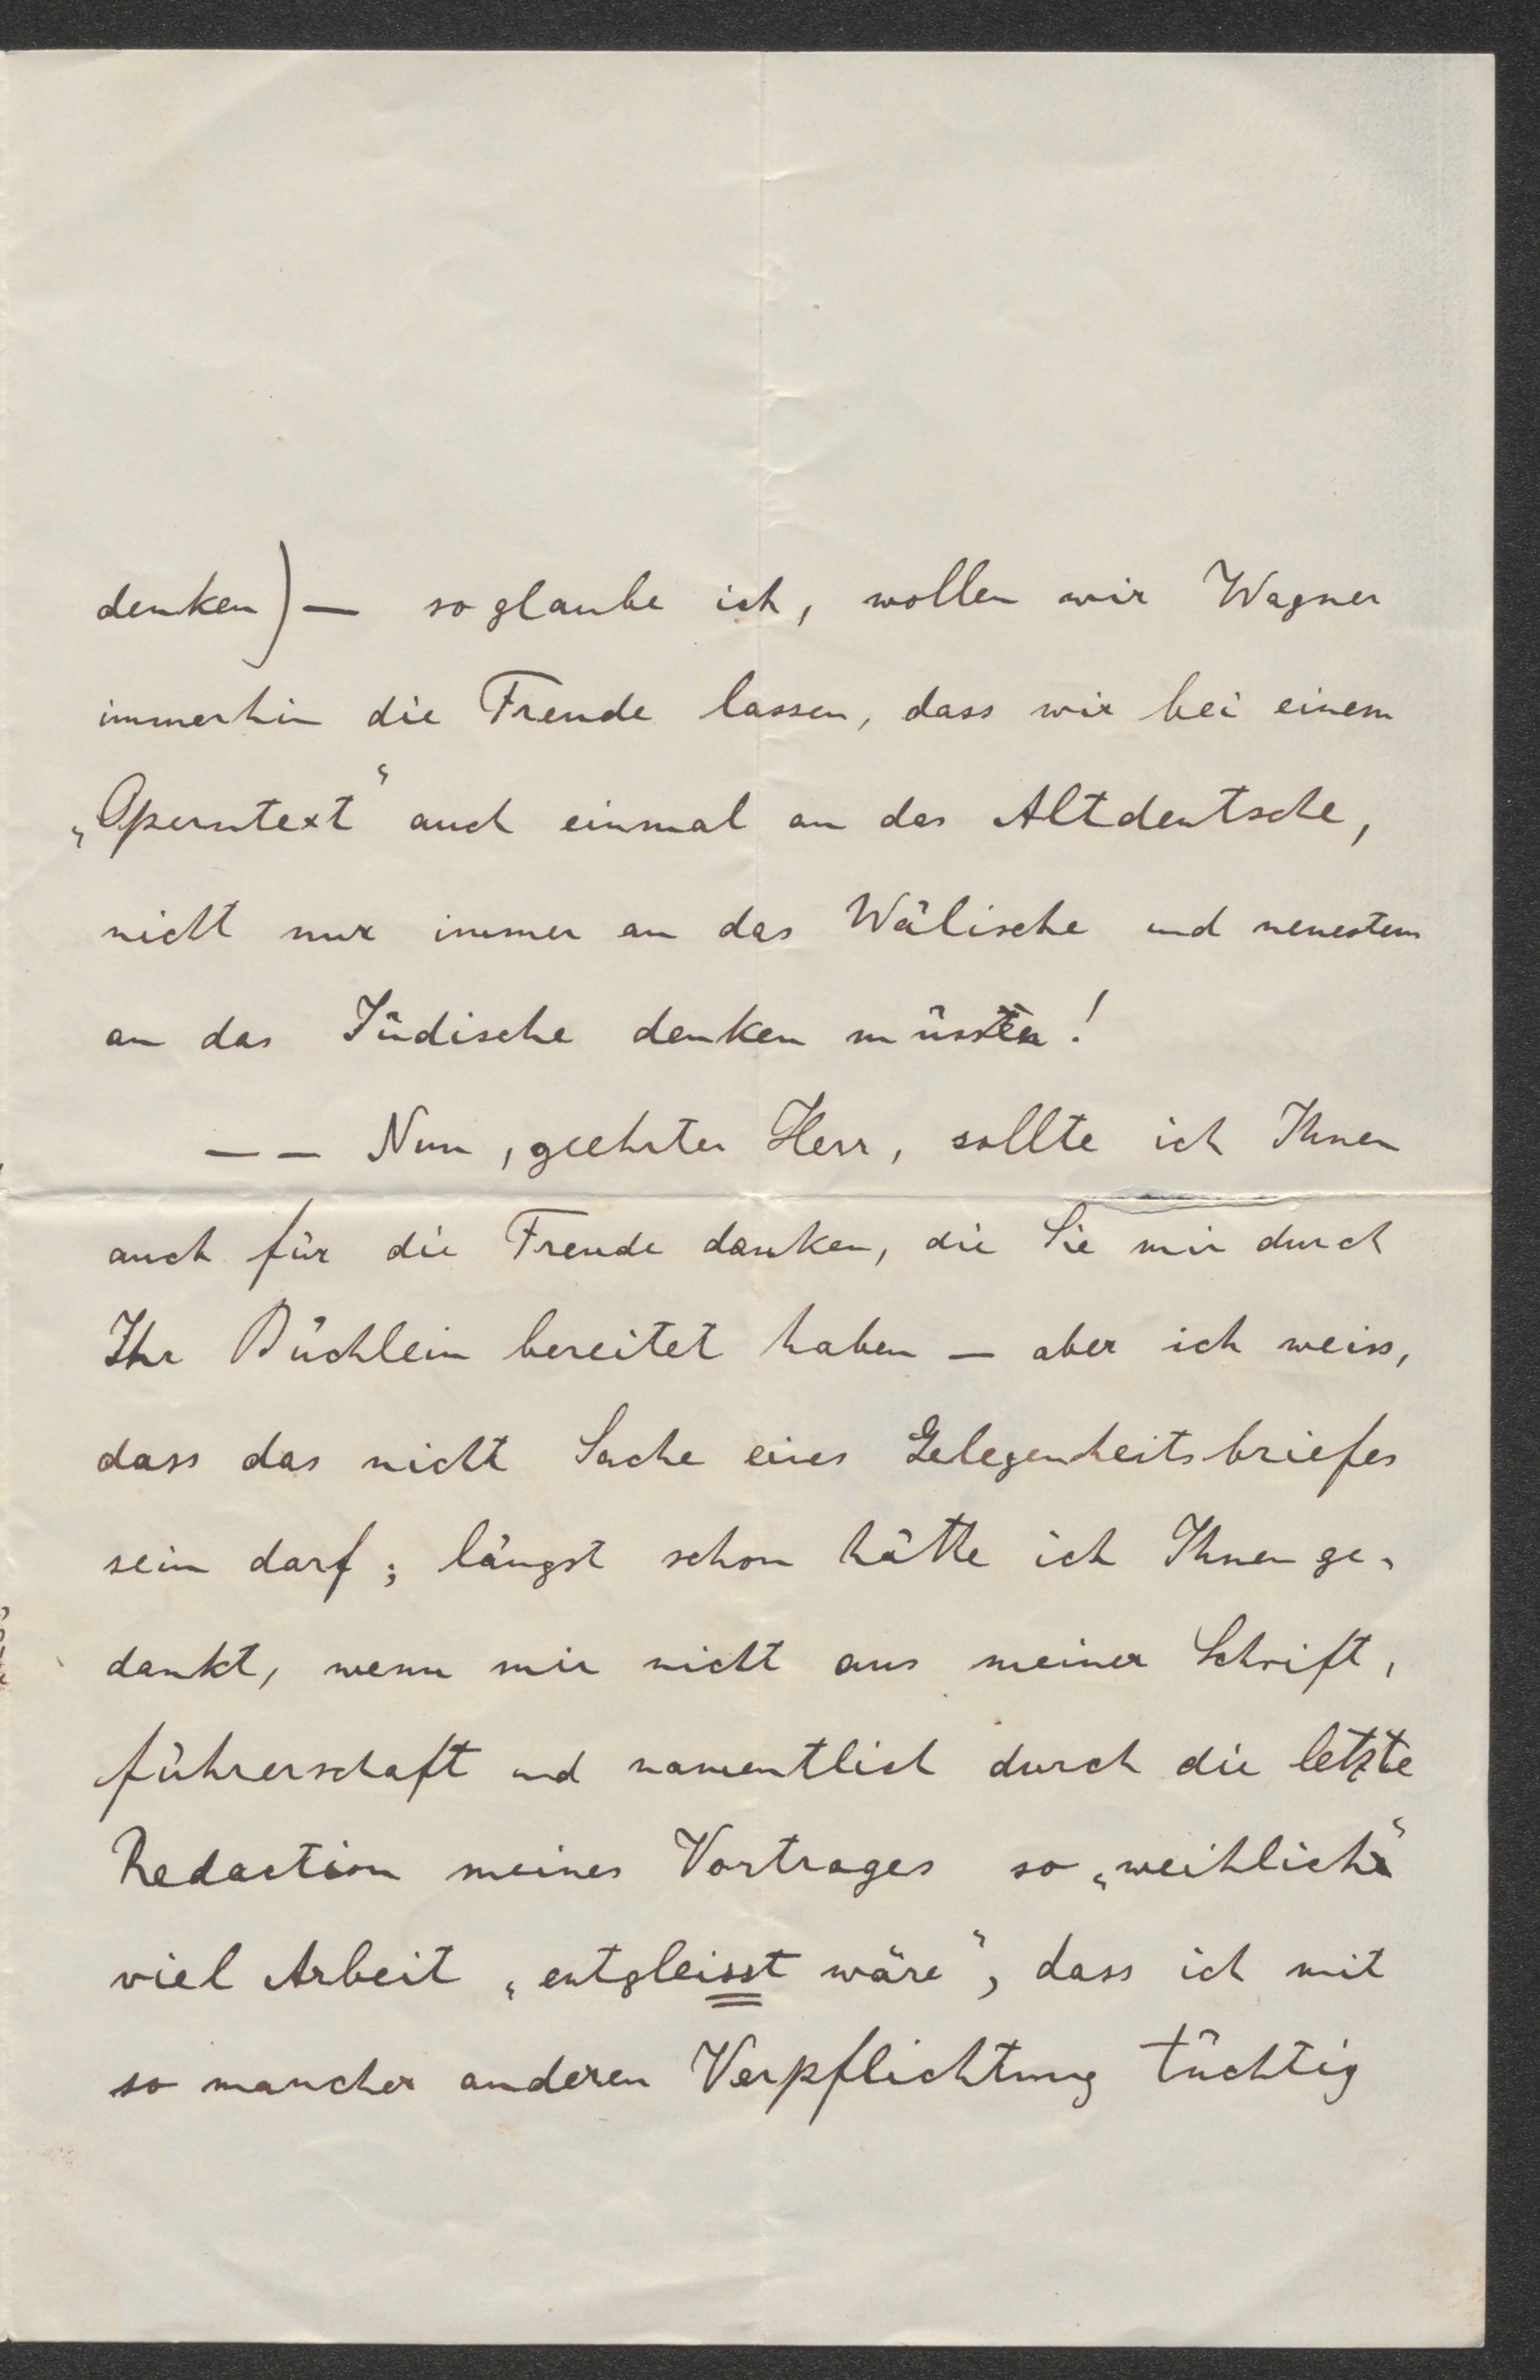 denken) — so glaube ich, wollen wir Wagner
immerhin die Freude lassen, dass wir bei einem
„Operntext“ auch einmal an das Altdeutsche,
nicht nur immer an das Wälische und neuestens
an das Jüdische denken müssten!
— — Nun, geehrter Herr, sollte ich Ihnen
auch für die Freude danken, die Sie mir durch
Ihr Büchlein bereitet haben — aber ich weiss,
dass das nicht Sache eines Gelegenheitsbriefes
sein darf; längst schon hätte ich Ihnen ge-
dankt, wenn mir nicht aus meiner Schrift-
führerschaft und namentlich durch die letzte
Redaction meines Vortrages so „weihlich“
viel Arbeit „entgleisst wäre“, dass ich mit
so mancher anderen Verpflichtung tüchtig